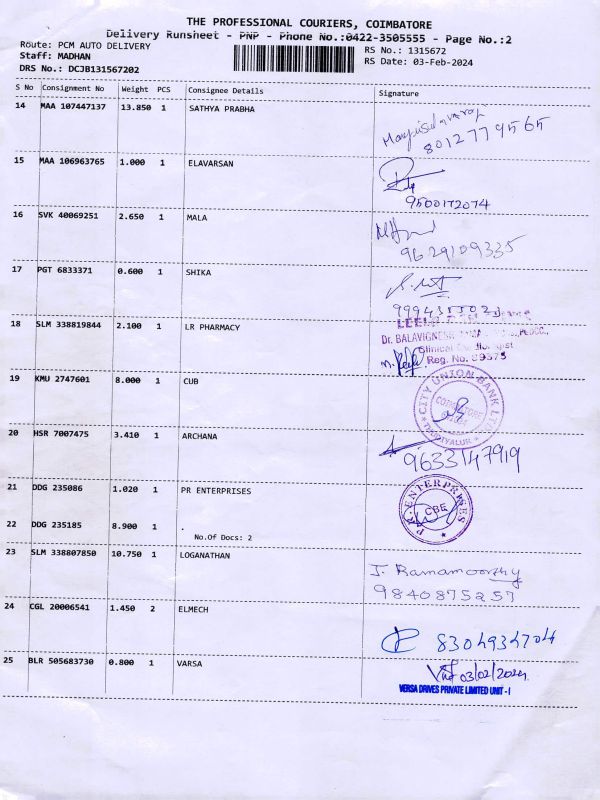 THE PROFESSIONAL COURIERS, COIMBATORE
Delivery Runsheet - PNP - Phone No.:0422-3505555 - Page No.:2
Route: PCM AUTO DELIVERY RS No.: 1315672
Staff: MADHAN RS Date: 03-Feb-2024
DRS No.: DCJB131567202
S No Consignment No Weight PCS Consignee Details Signature
14 MAA 107447137 13.850 1 SATHYA PRABHA
8012779565
15 MAA 106963765 1.000 1 ELAVARSAN
9500172074
16 SVK 40069251 2.650 1 MALA
9629109335
17 PGT 6833371 0.600 1 SHIKA
18 SLM 338819844 2.100 1 LR PHARMACY
Dr. BALAVIGNESH
Reg. No. 89575
19 KMU 2747601 8.000 1 CUB
CITY UNION BANK LTD
COIMBATORE
20 HSR 7007475 3.410 1 ARCHANA
9633147919
21 DDG 235086 1.020 1 PR ENTERPRISES
P.R. ENTERPRISES
CBE
22 DDG 235185 8.900 1
No.Of Docs: 2
23 SLM 338807850 10.750 1 LOGANATHAN
J. Ramamoorthy
9840875257
24 CGL 20006541 1.450 2 ELMECH
8304934704
25 BLR 505683730 0.800 1 VARSA
03/02/2024
VERSA DRIVES PRIVATE LIMITED UNIT - I